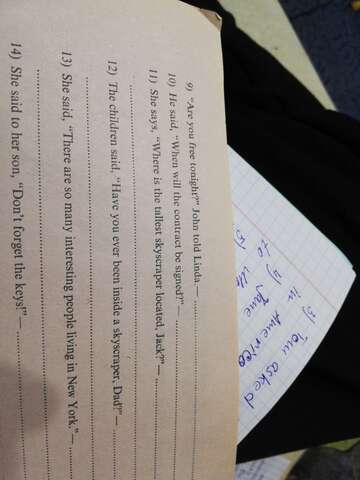 9) "Are you free tonight?" John told Linda.—
10) He said, "When will the contract be signed?"—
11) She says, "Where is the tallest skyscraper located, Jack?"—
12) The children said, "Have you ever been inside a skyscraper, Dad?"—
13) She said, "There are so many interesting people living in New York."—
14) She said to her son, "Don't forget the keys!"—
3) Tom asked
in America
4) Jane
to
5)